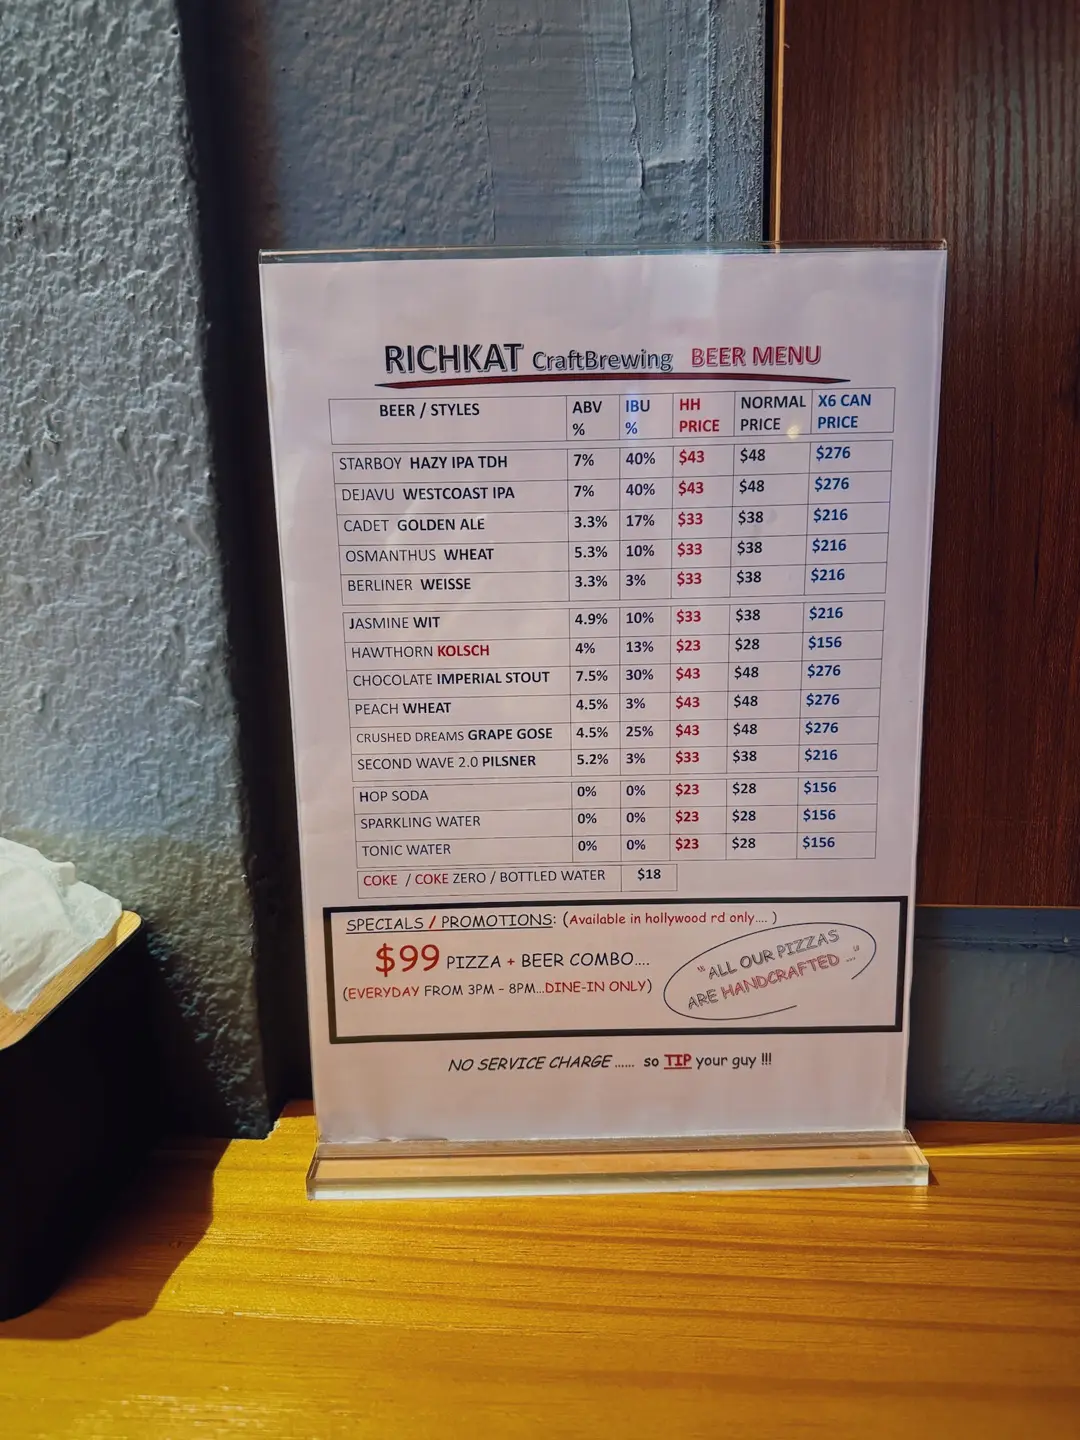 RICHKAT CraftBrewing BEER MENU
BEER / STYLES ABV % IBU % HH PRICE NORMAL PRICE X6 CAN PRICE
STARBOY HAZY IPA TDH 7% 40% $43 $48 $276
DEJAVU WESTCOAST IPA 7% 40% $43 $48 $276
CADET GOLDEN ALE 3.3% 17% $33 $38 $216
OSMANTHUS WHEAT 5.3% 10% $33 $38 $216
BERLINER WEISSE 3.3% 3% $33 $38 $216
JASMINE WIT 4.9% 10% $33 $38 $216
HAWTHORN KOLSCH 4% 13% $23 $28 $156
CHOCOLATE IMPERIAL STOUT 7.5% 30% $43 $48 $276
PEACH WHEAT 4.5% 3% $43 $48 $276
CRUSHED DREAMS GRAPE GOSE 4.5% 25% $43 $48 $276
SECOND WAVE 2.0 PILSNER 5.2% 3% $33 $38 $216
HOP SODA 0% 0% $23 $28 $156
SPARKLING WATER 0% 0% $23 $28 $156
TONIC WATER 0% 0% $23 $28 $156
COKE / COKE ZERO / BOTTLED WATER $18
SPECIALS / PROMOTIONS: (Available in hollywood rd only.... )
$99 PIZZA + BEER COMBO....
(EVERYDAY FROM 3PM – 8PM...DINE-IN ONLY)
"ALL OUR PIZZAS
ARE HANDCRAFTED ...."
NO SERVICE CHARGE ...... so TIP your guy !!!